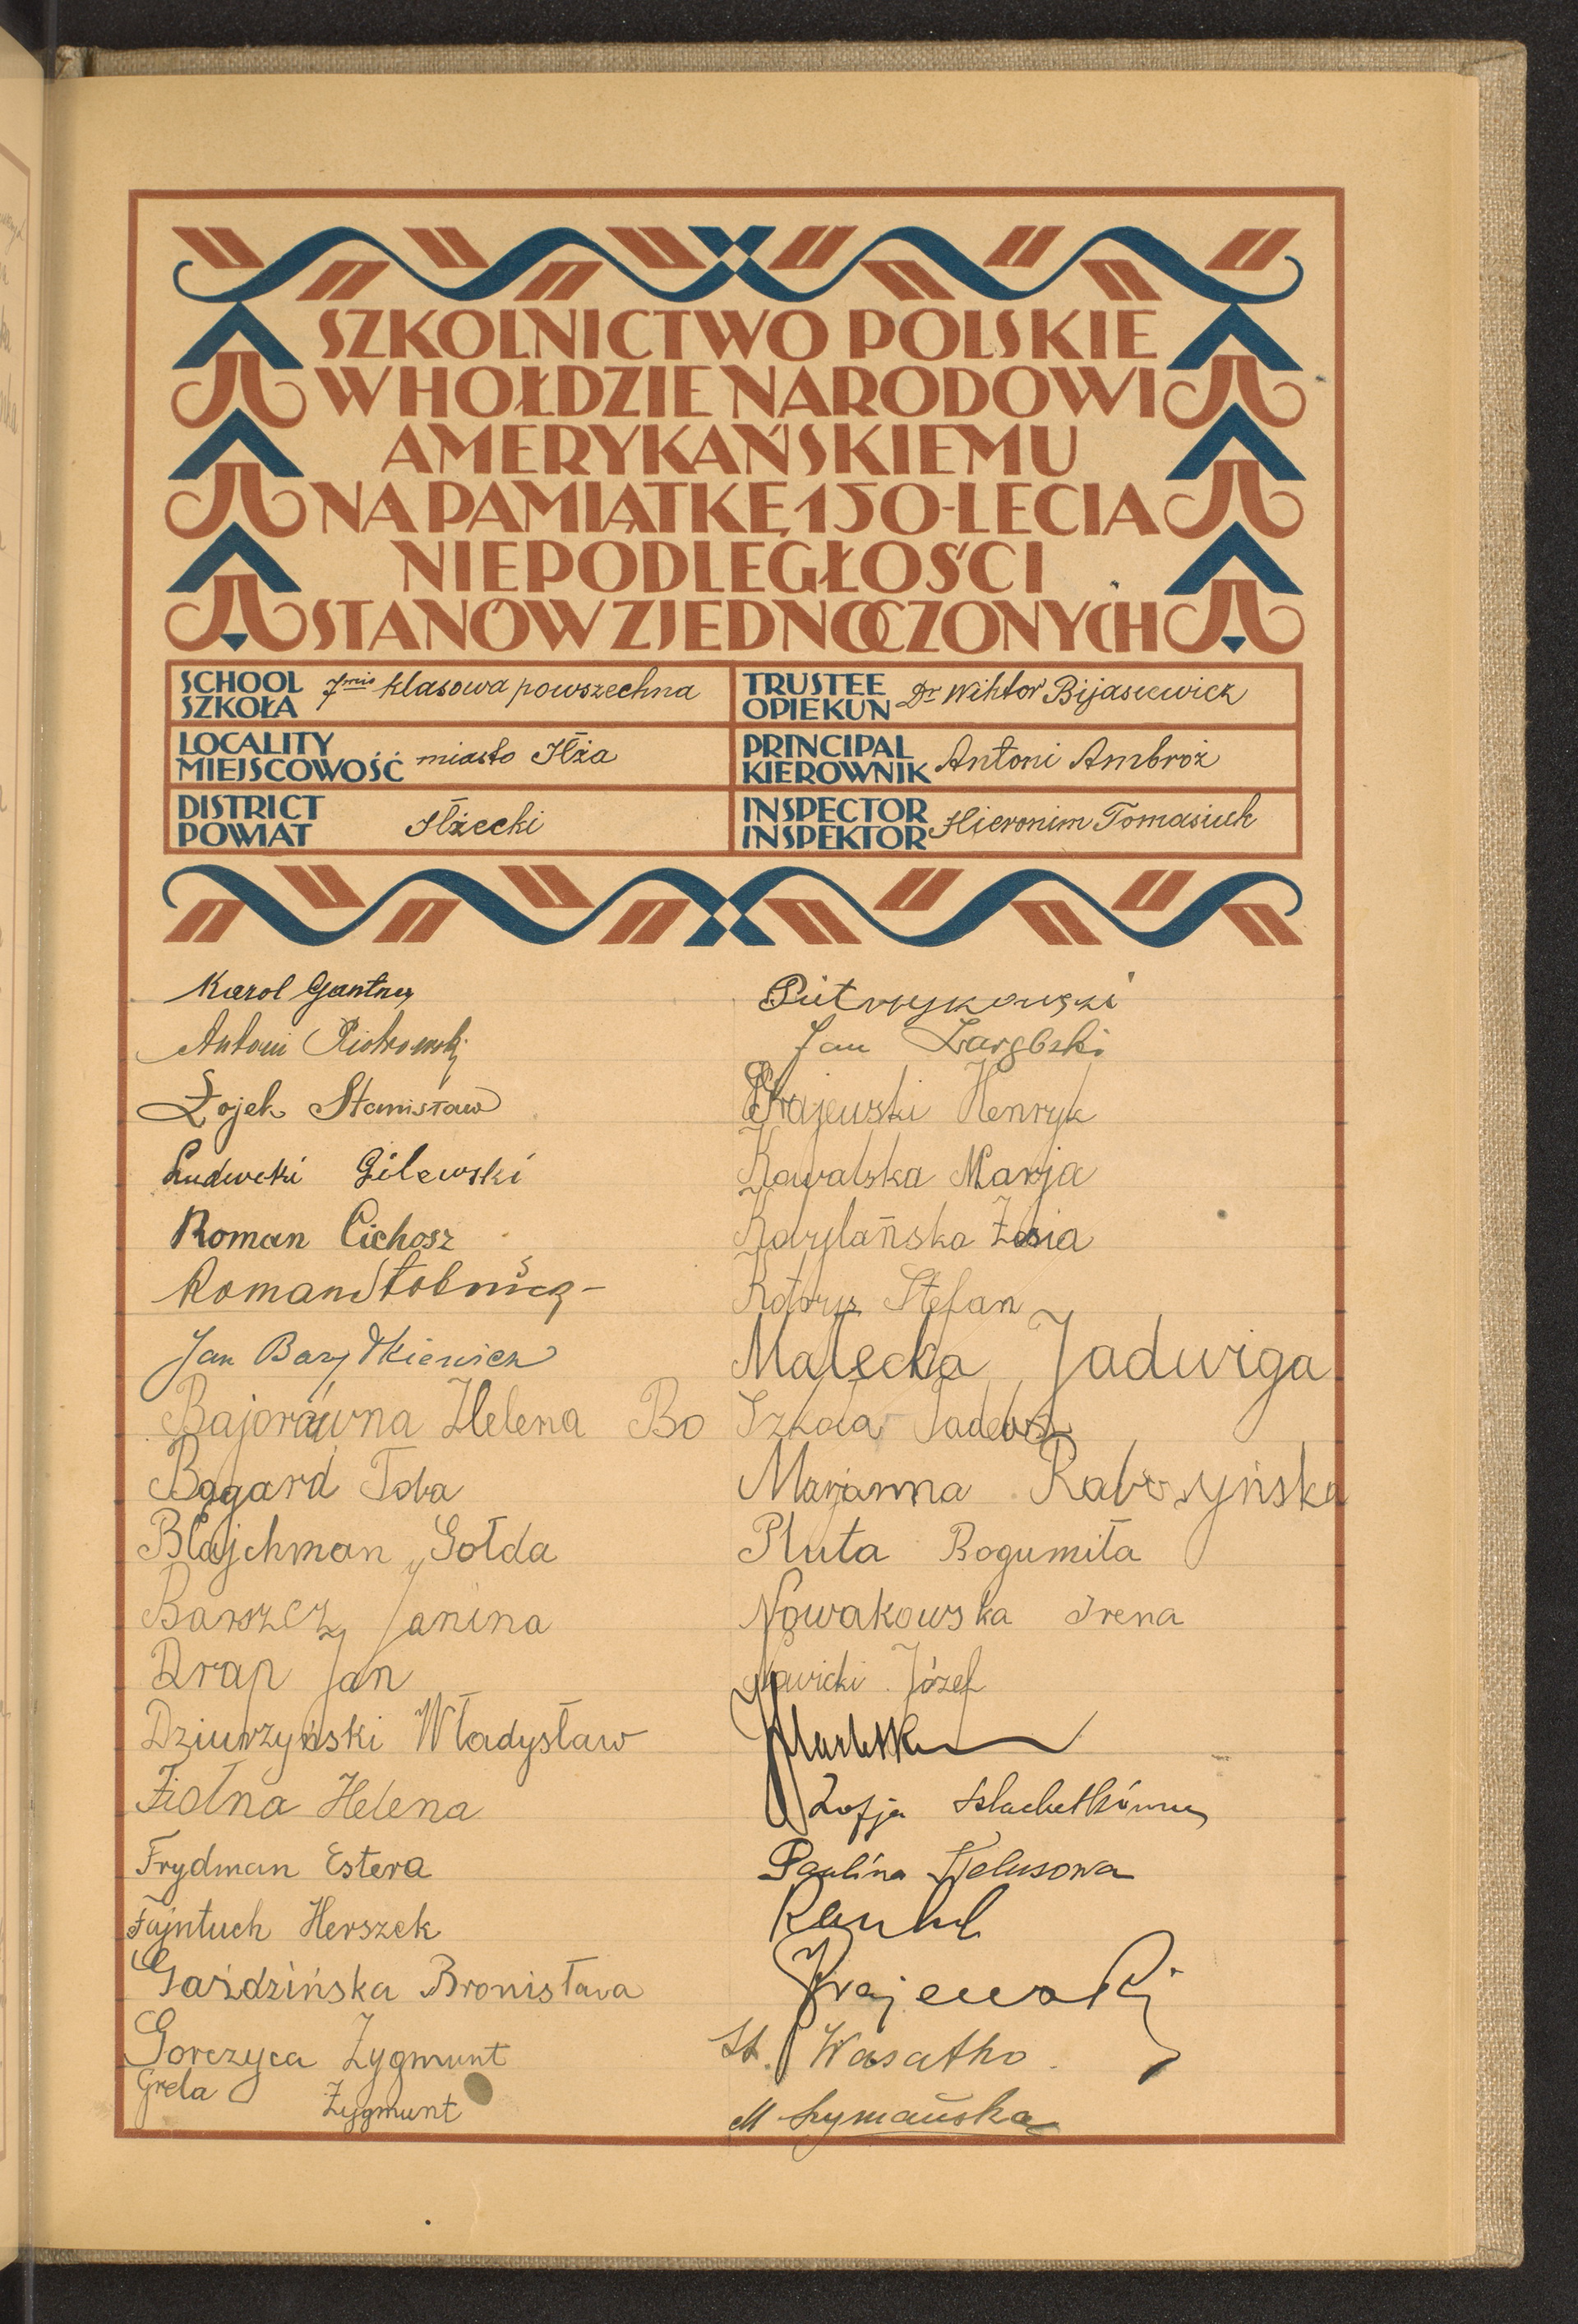 SZKOLNICTWO POLSKIE
W HOŁDZIE NARODOWI
AMERYKAŃSKIEMU
NA PAMIĄTKĘ 150-LECIA
NIEPODLEGŁOŚCI
STANÓW ZJEDNOCZONYCH
SCHOOL
SZKOŁA
7mio klasowa powszechna
TRUSTEE
OPIEKUN
Dr Wiktor Bijasiewicz
LOCALITY
MIEJSCOWOŚĆ
miasto Iłża
PRINCIPAL
KIEROWNIK
Antoni Ambroż
DISTRICT
POWIAT
Iłżecki
INSPECTOR
INSPEKTOR
Hieronim Tomasiuk
Karol Gantner
Antoni Piotrowski
Łojek Stanisław
Ludwcki Gilewski
Roman Cichosz
Roman
Jan
Bajorówna Helena Bo
Bogard Toba
Blajchman Gołda
Barszcz Janina
Drap Jan
Dziurzyński Władysław
Ziołna Helena
Frydman Estera
Fajntuch Herszek
Gaździńska Bronisława
Gorczyca Zygmunt
Grela
Zygmunt
Pietrzykowski
Jan Zarębski
Krajewski Henryk
Kowalska Marja
Zosia
Stefan
Malecka Jadwiga
Szkoła
Marjanna
Pluta Bogumiła
Nowakowska Irena
Nowicki Józef
Zofja Szlachetkówna
Paulina
Krajewski
St. Wasatko
M Szymańska